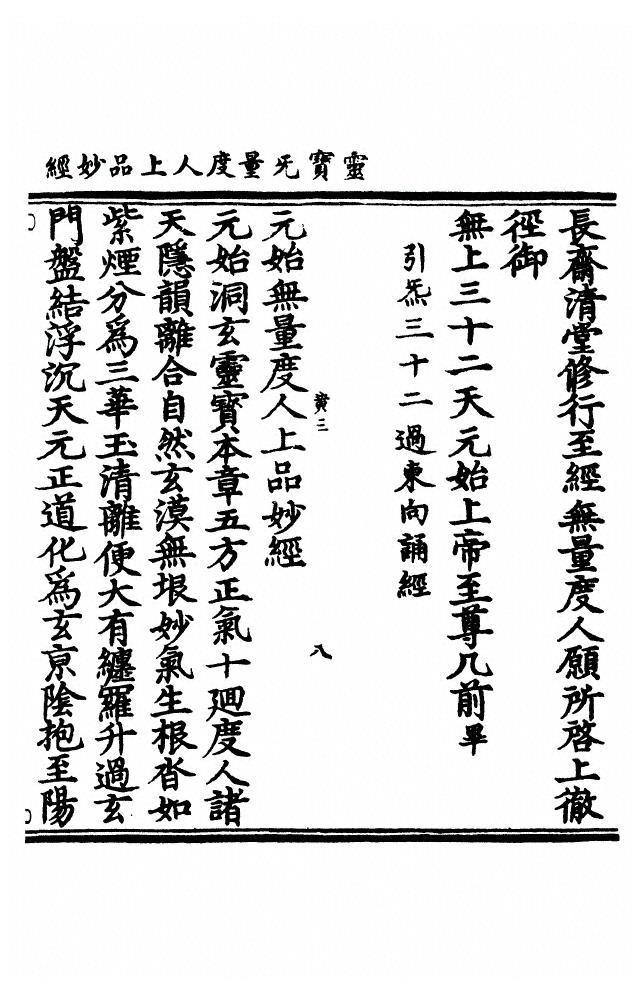 靈寶旡量度人上品妙經
長齋清堂修行至經無量度人願所啓上徹
徑御
無上三十二天元始上帝至尊几前畢
引炁三十二過東向誦經
黃三
八
元始無量度人上品妙經
元始洞玄靈寶本章五方正氣十廻度人諸
天隱韻離合自然玄漠無垠妙氣生根沓如
紫煙分為三華玉清離便大有纏羅升過玄
門盤結浮沉天元正道化為玄京陰抱至陽